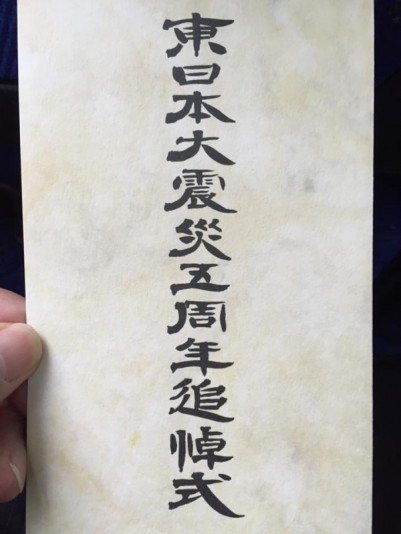 東日本大震災五周年追悼式